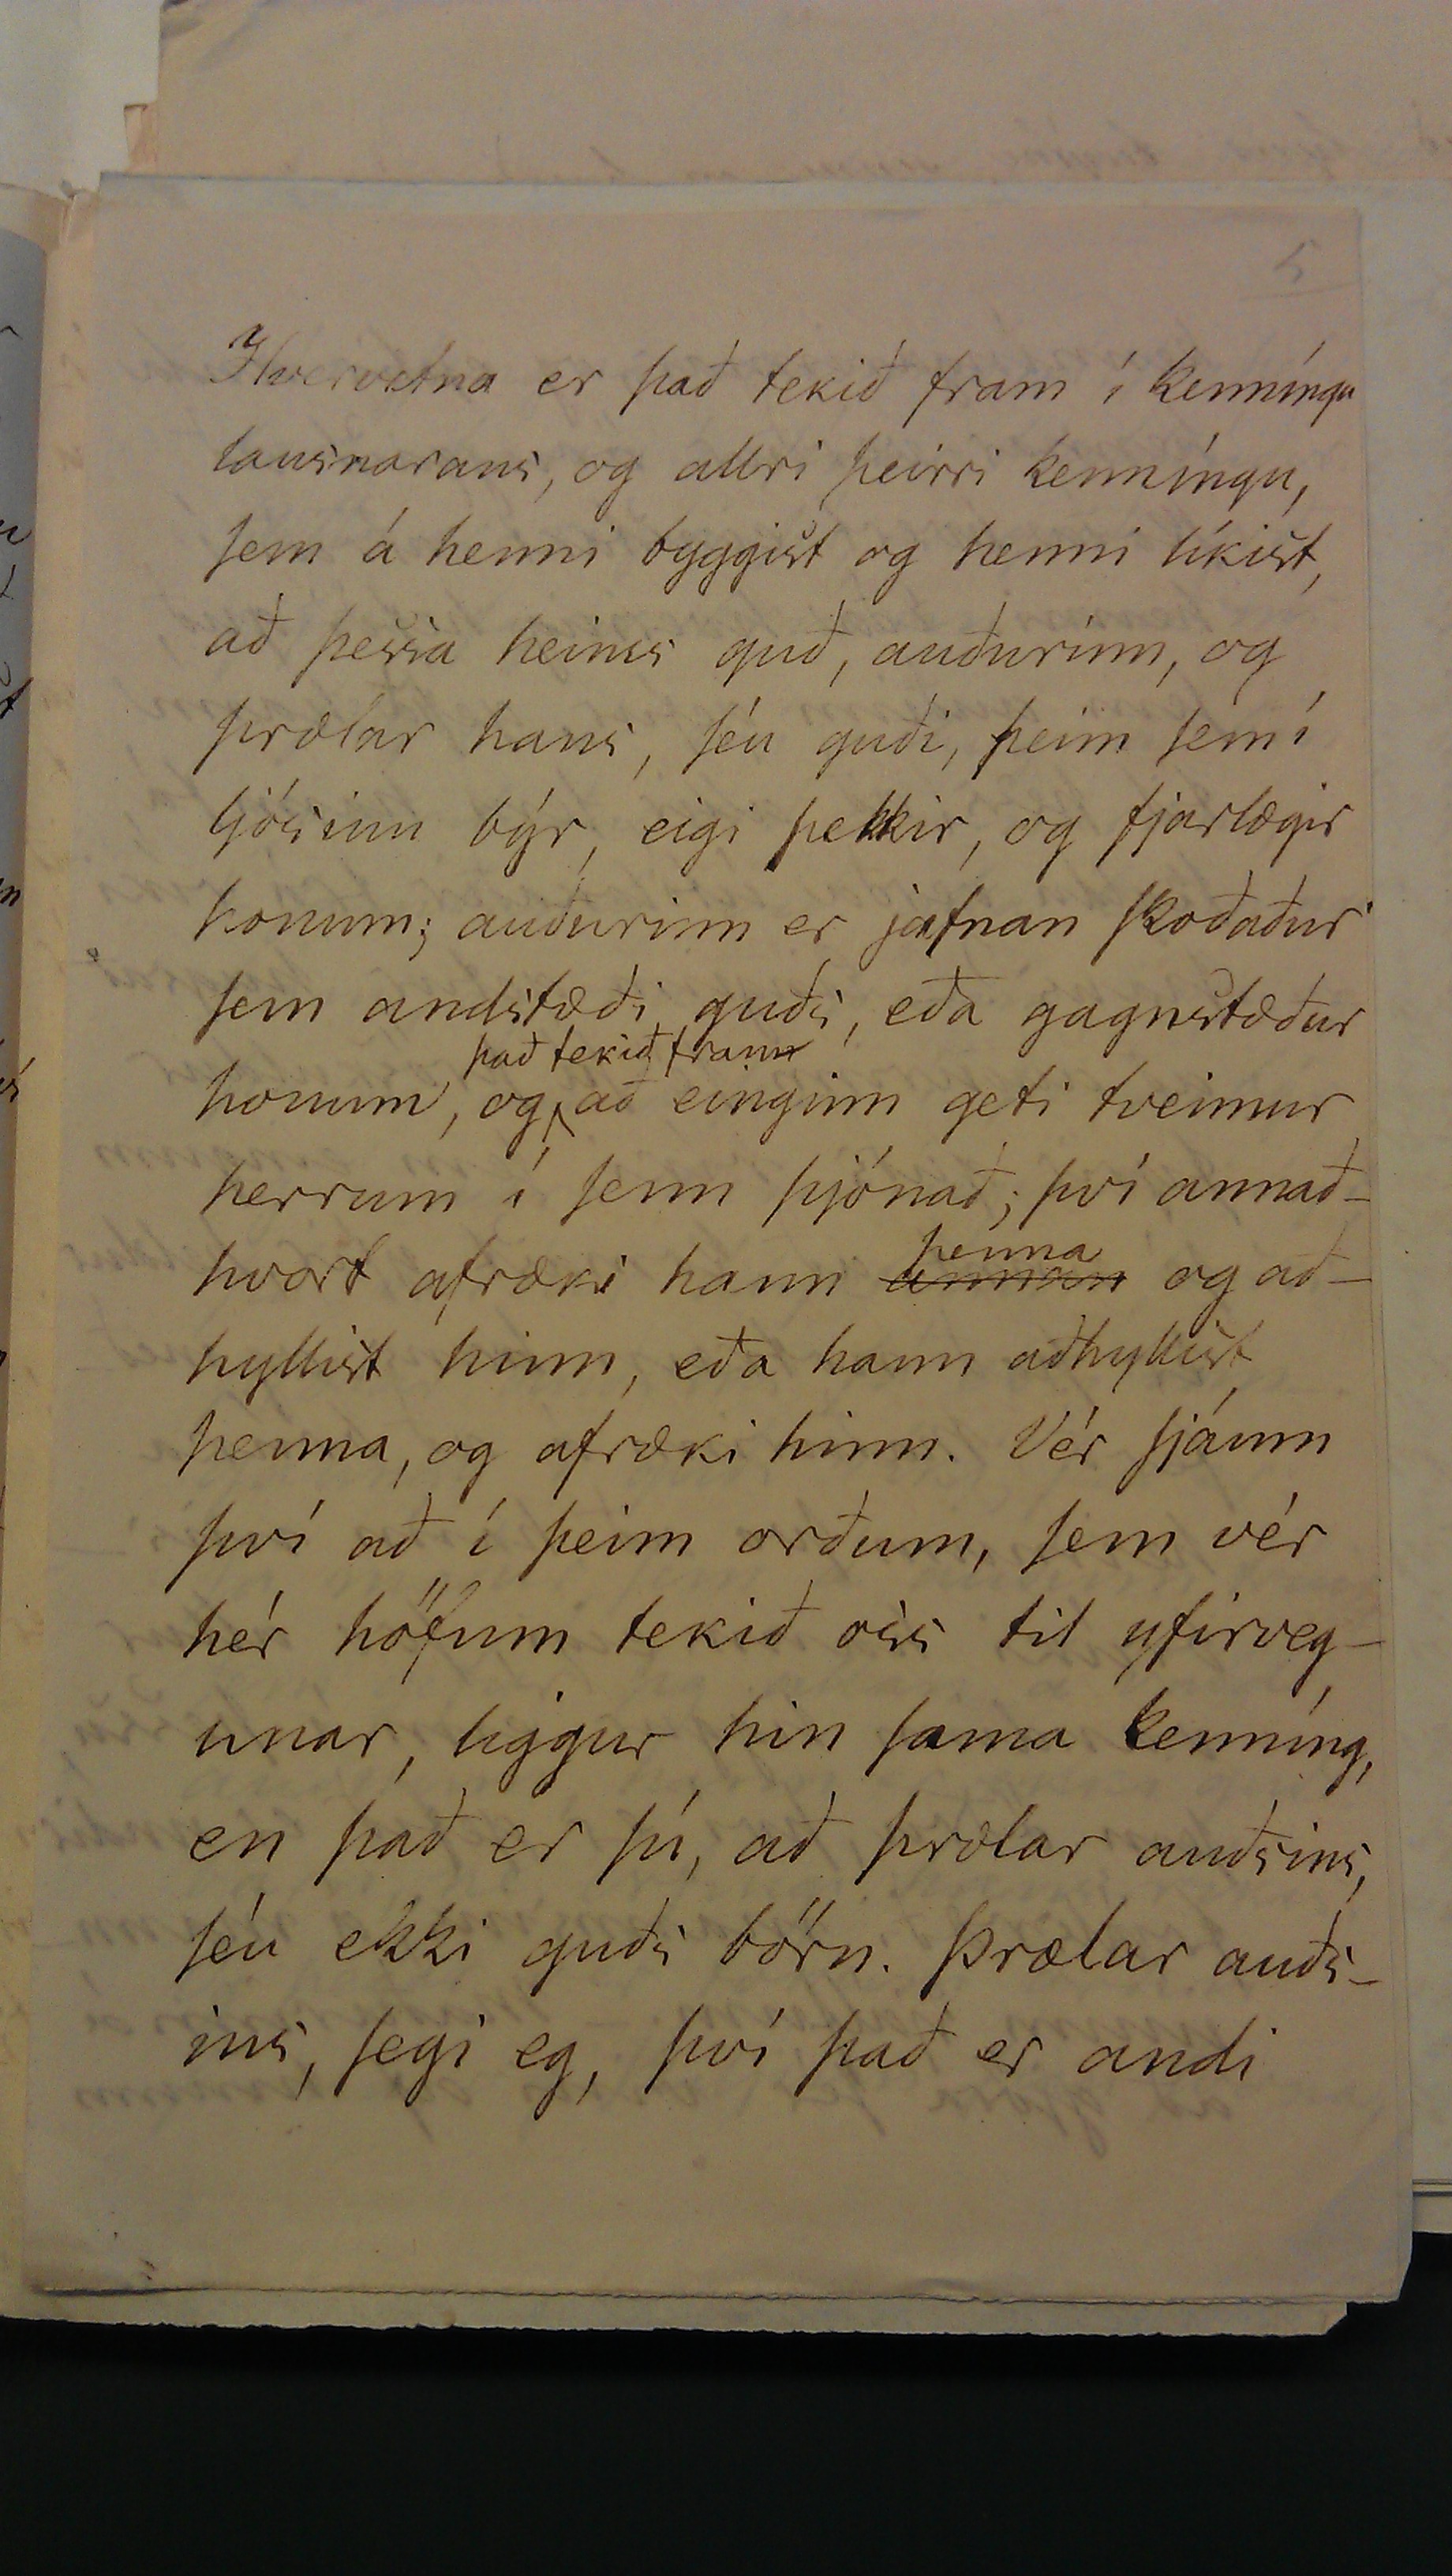 5
Hvervetna er það tekið fram í kenníngu
lausnarans, og allri þeirri kenníngu,
sem á henni byggist og henni líkist,
að þessa heims guð, auðurinn, og
þrælar hans, séu guði, þeim sem í
ljósinu býr, eigi þekkir, og fjarlægir
honum; auðurinn er jafnan skoðaður
sem andstæði guðs, eða gagnstæður
það tekið fram
honum, og að einginn geti tveimur
herrum í senn þjónað; því annað-
þenna
hvort afræki hann annan og að-
hyllist hinn, eða hann aðhyllist
þenna, og afræki hinn. Vér sjáum
því að í þeim orðum, sem vér
hér höfum tekið oss til yfirveg-
unar, liggur hin sama kenníng,
en það er sú, að þrælar auðsins,
séu ekki guðs börn. Þrælar auðs-
ins, segi eg, því það er andi